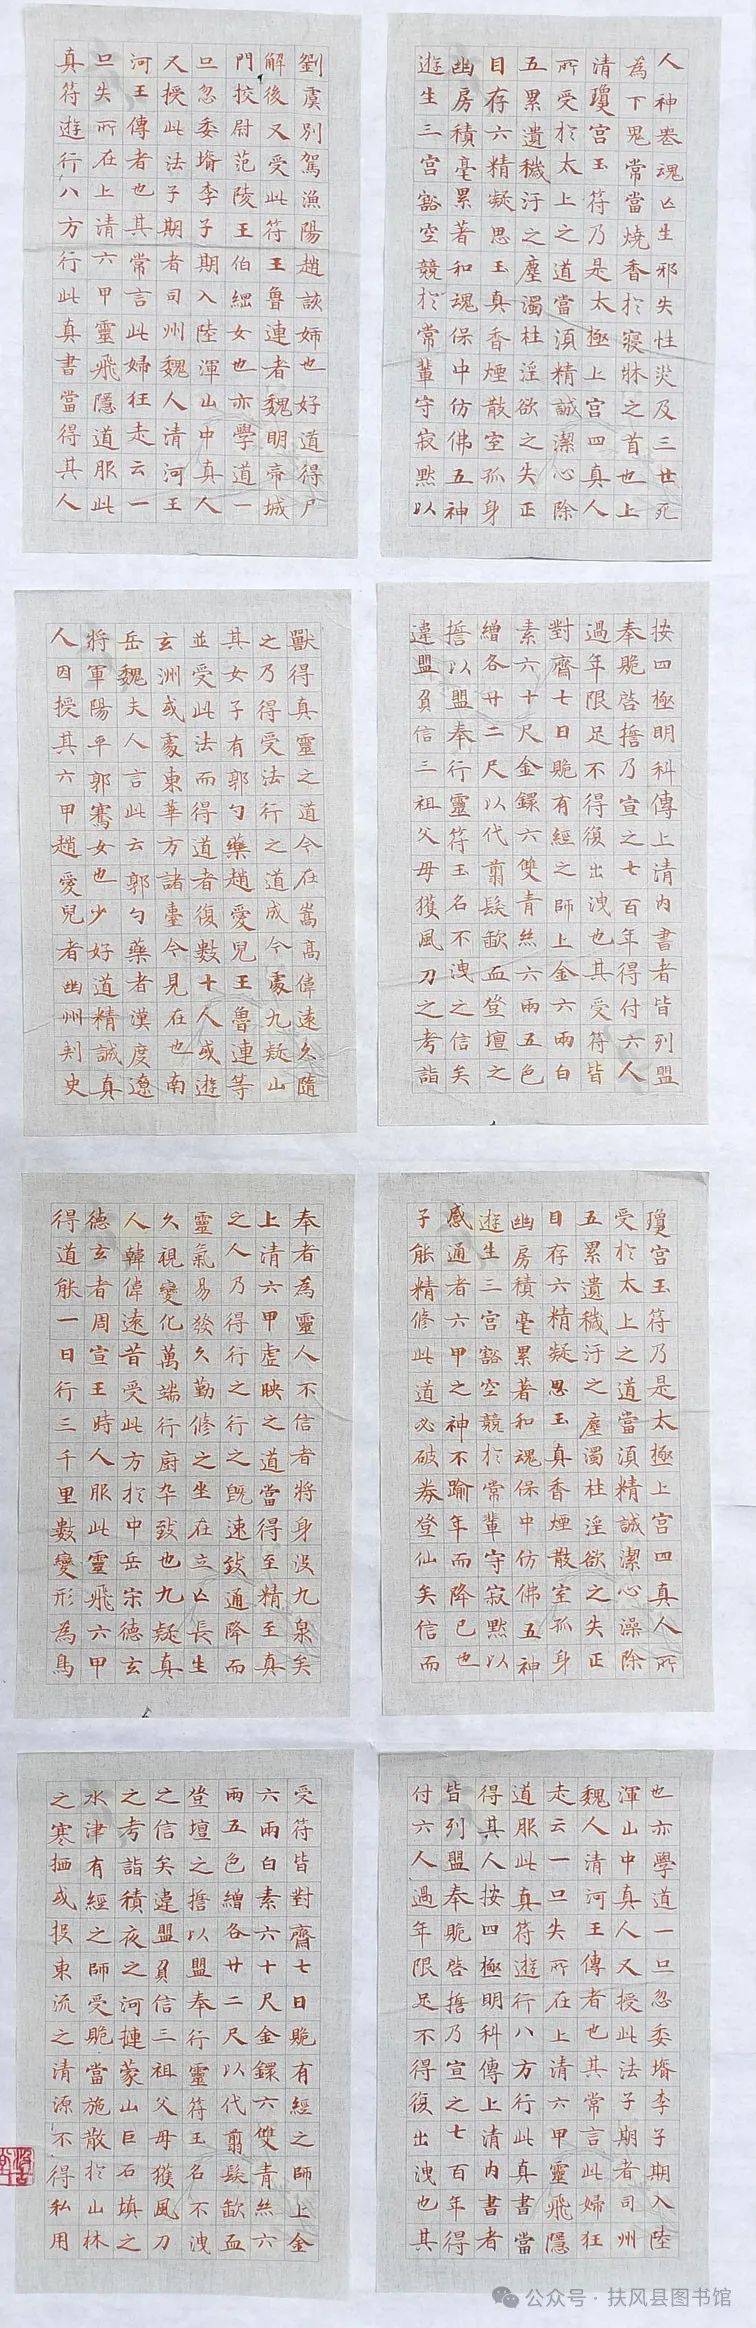 人神喪魂亡生邪失性災及三世死
為下鬼常當燒香於寢牀之首也上
清瓊宮玉符乃是太極上宮四真人
所受於太上之道當須精誠潔心除
五累遺穢汙之塵濁杜淫欲之失正
目存六精凝思玉真香煙散室孤身
幽房積毫累著和魂保中仿佛五神
遊生三宮豁空競於常輩守寂默以
劉虞別駕漁陽趙該姊也好道得尸
解後又受此符王魯連者魏明帝城
門挍尉范陵王伯綱女也亦學道一
旦忽委壻李子期入陸渾山中真人
又授此法子期者司州魏人清河王
河王傳者也其常言此婦狂走云一
旦失所在上清六甲靈飛隱道服此
真符遊行八方行此真書當得其人
按四極明科傳上清內書者皆列盟
奉貺啓擔乃宣之七百年得付六人
過年限足不得復出洩也其受符皆
對齋七日貺有經之師上金六兩白
素六十尺金鐶六雙青絲六兩五色
繒各廿二尺以代翦髮歃血登壇之
擔以盟奉行靈符玉名不洩之信矣
違盟負信三祖父母獲風刀之考詣
獸得真靈之道今在嵩高偉遠久隨
之乃得受法行之道成今處九疑山
其女子有郭勺藥趙愛兒王魯連等
並受此法而得道者復數十人或遊
玄洲或處東華方諸臺今見在也南
岳魏夫人言此云郭勺藥者漢度遼
將軍陽平郭騫女也少好道精誠真
人因授其六甲趙愛兒者幽州刺史
瓊宮玉符乃是太極上宮四真人所
受於太上之道當須精誠潔心澡除
五累遺穢汙之塵濁杜淫欲之失正
目存六精凝思玉真香煙散室孤身
幽房積毫累著和魂保中仿佛五神
遊生三宮豁空競於常輩守寂默以
感通者六甲之神不踰年而降已也
子能精修此道必破券登仙矣信而
奉者為靈人不信者將身沒九泉矣
上清六甲虛映之道當得至精至真
之人乃得行之行之既速致通降而
靈氣易發久勤修之坐在立亡長生
久視變化萬端行廚卒致也九疑真
人韓偉遠昔受此方於中岳宗德玄
德玄者周宣王時人服此靈飛六甲
得道能一日行三千里數變形為鳥
也亦學道一旦忽委壻李子期入陸
渾山中真人又授此法子期者司州
魏人清河王傳者也其常言此婦狂
走云一旦失所在上清六甲靈飛隱
道服此真符遊行八方行此真書當
得其人按四極明科傳上清內書者
皆列盟奉貺啓擔乃宣之七百年得
付六人過年限足不得復出洩也其
受符皆對齋七日貺有經之師上金
六兩白素六十尺金鐶六雙青絲六
兩五色繒各廿二尺以代翦髮歃血
登壇之擔以盟奉行靈符玉名不洩
之信矣違盟負信三祖父母獲風刀
之考詣積夜之河摙蒙山巨石填之
水津有經之師受貺當施散於山林
之寒栖或投東流之清源不得私用
公众号·扶风县图书馆